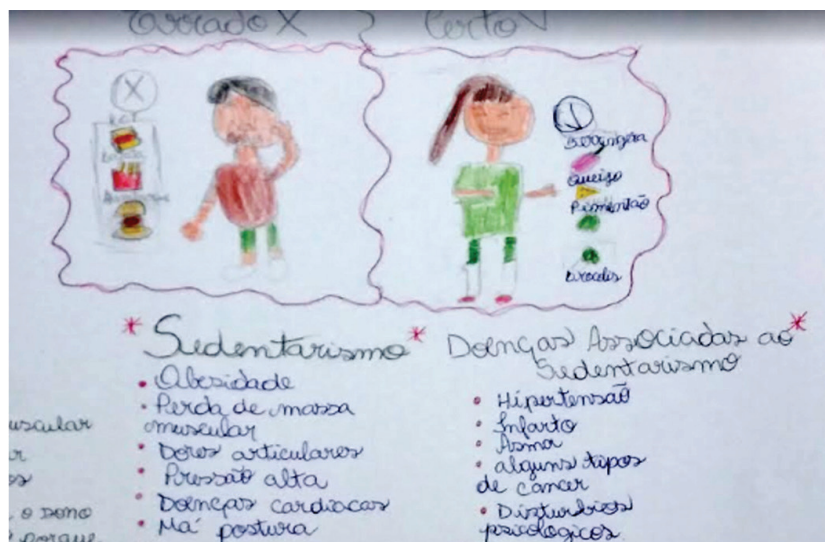 Errado X
Certo V
X
Hot
Batata
Berinjela
Queijo
Pimentão
Brócolis
* Sedentarismo *
• Obesidade
• Perda de massa
muscular
• Dores articulares
• Pressão alta
• Doenças cardíacas
• Má postura
Doenças Associadas ao *
Sedentarismo
• Hipertensão
• Infarto
• Asma
• alguns tipos
de câncer
• Distúrbios
psicologicos.
uscular
r
os
o sono
porque